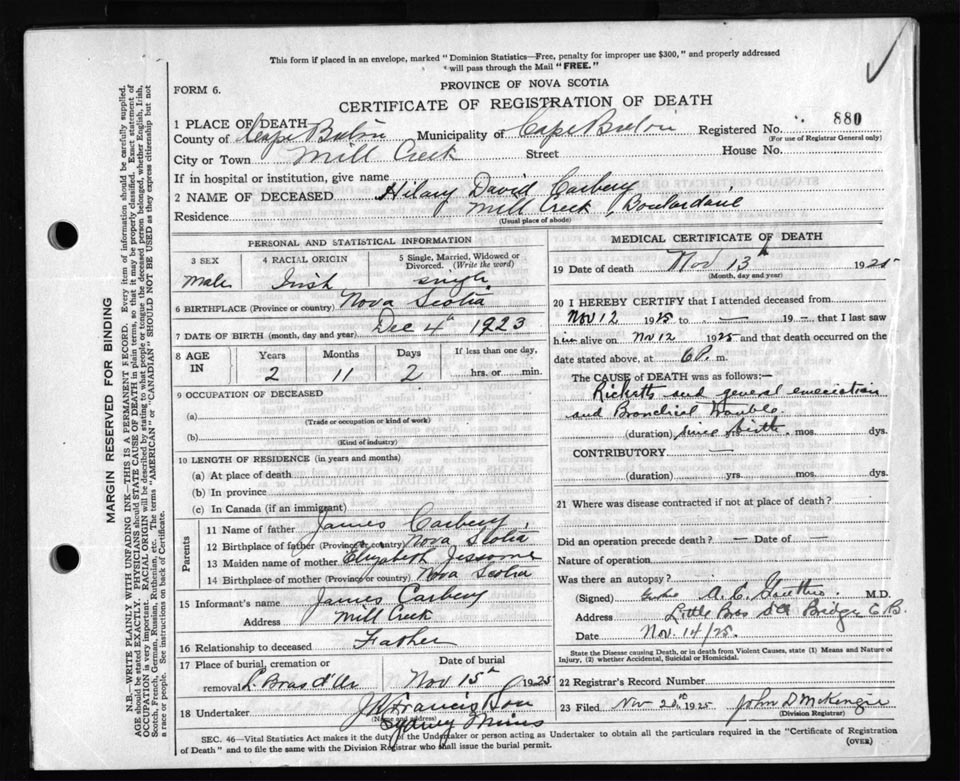 This form if placed in an envelope, marked "Dominion Statistics—Free, penalty for improper use $300," and properly addressed
will pass through the Mail "FREE."
FORM 6.
PROVINCE OF NOVA SCOTIA
CERTIFICATE OF REGISTRATION OF DEATH
1 PLACE OF DEATH
County of Cape Breton Municipality of Cape Breton Registered No. 880
(For use of Registrar General only)
City or Town Mill Creek Street House No.
If in hospital or institution, give name
2 NAME OF DECEASED Hilary David Carbery
Residence Mill Creek, Boulardarie
(Usual place of abode)
PERSONAL AND STATISTICAL INFORMATION
3 SEX 4 RACIAL ORIGIN 5 Single, Married, Widowed or Divorced. (Write the word)
Male Irish single
6 BIRTHPLACE (Province or country) Nova Scotia
7 DATE OF BIRTH (month, day and year) Dec 4th 1923
8 AGE IN Years Months Days If less than one day,
2 11 2 hrs. or min.
9 OCCUPATION OF DECEASED
(a)
(Trade or occupation or kind of work)
(b)
(Kind of industry)
10 LENGTH OF RESIDENCE (in years and months)
(a) At place of death
(b) In province
(c) In Canada (if an immigrant)
Parents
11 Name of father James Carbery
12 Birthplace of father (Province or country) Nova Scotia
13 Maiden name of mother Elizabeth Jessome
14 Birthplace of mother (Province or country) Nova Scotia
15 Informant's name James Carbery
Address Mill Creek
16 Relationship to deceased Father
17 Place of burial, cremation or Date of burial
removal L. Bras d'Or Nov 15th 1925
18 Undertaker J A Francis Son
(Name and address)
Sydney Mines
MEDICAL CERTIFICATE OF DEATH
19 Date of death Nov 13th 1925
(Month, day and year)
20 I HEREBY CERTIFY that I attended deceased from
Nov 12 1925 to — 19 —, that I last saw
him alive on Nov 12 1925 and that death occurred on the
date stated above, at 6 P. m.
The CAUSE of DEATH was as follows:—
Ricketts and general emaciation
and Bronchial trouble.
(duration) since birth yrs. mos. dys.
CONTRIBUTORY —
(duration) yrs. mos. dys.
21 Where was disease contracted if not at place of death?
Did an operation precede death? — Date of —
Nature of operation
Was there an autopsy?
(Signed) A. C. M.D.
Address Little Bras d'Or Bridge C.B.
Date Nov. 14/25.
State the Disease causing Death, or in death from Violent Causes, state (1) Means and Nature of
Injury, (2) whether Accidental, Suicidal or Homicidal.
22 Registrar's Record Number
23 Filed Nov 1925 John D McKenzie
(Division Registrar)
SEC. 46—Vital Statistics Act makes it the duty of the Undertaker or person acting as Undertaker to obtain all the particulars required in the "Certificate of Registration
of Death" and to file the same with the Division Registrar who shall issue the burial permit.
(OVER)
MARGIN RESERVED FOR BINDING
N.B.—WRITE PLAINLY WITH UNFADING INK—THIS IS A PERMANENT RECORD. Every item of information should be carefully supplied.
AGE should be stated EXACTLY. PHYSICIANS should STATE CAUSE OF DEATH in plain terms, so that it may be properly classified. Exact statement of
OCCUPATION is very important. RACIAL ORIGIN will be described by stating to what people or tongue the deceased person belonged, whether English, Irish,
Scotch, French, German, Russian, Ruthenian, etc. The terms "AMERICAN" or "CANADIAN" SHOULD NOT BE USED as they express citizenship but not
a race or people. See instructions on back of Certificate.